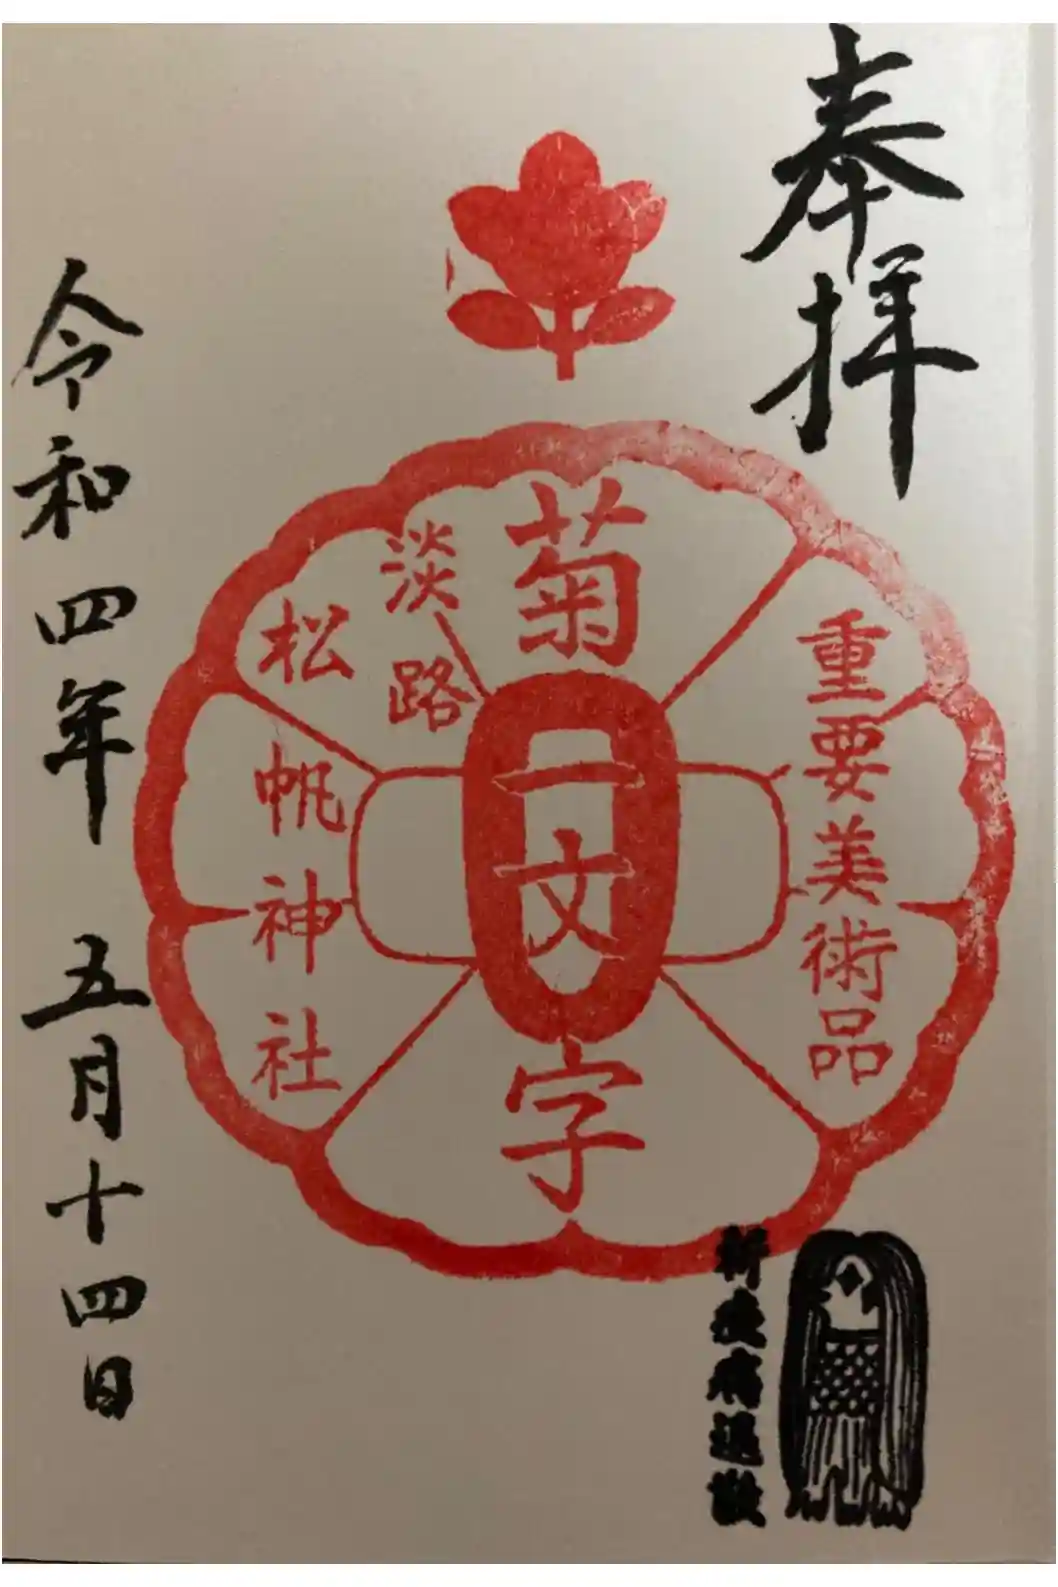 奉拝
重要美術品
菊一文字
淡路
松帆神社
令和四年 五月十四日
祈疫病退散